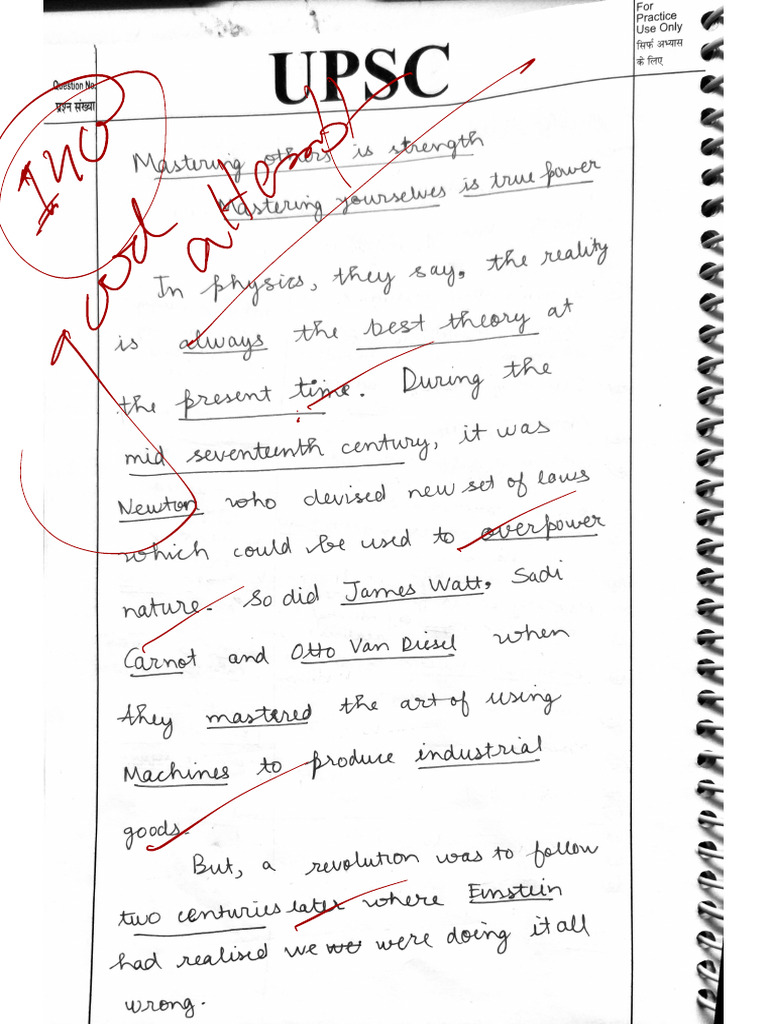 For
Practice
Use Only
सिर्फ अभ्यास
के लिए
UPSC
Question No.
प्रश्न संख्या
Good attempt
Mastering others is strength
Mastering yourselves is true power
In physics, they say, the reality
is always the best theory at
the present time. During the
mid seventeenth century, it was
Newton who devised new set of laws
which could be used to overpower
nature. So did James Watt, Sadi
Carnot and Otto Van Diesel when
they mastered the art of using
Machines to produce industrial
goods.
But, a revolution was to follow
two centuries later where Einstein
had realised we we were doing it all
wrong.